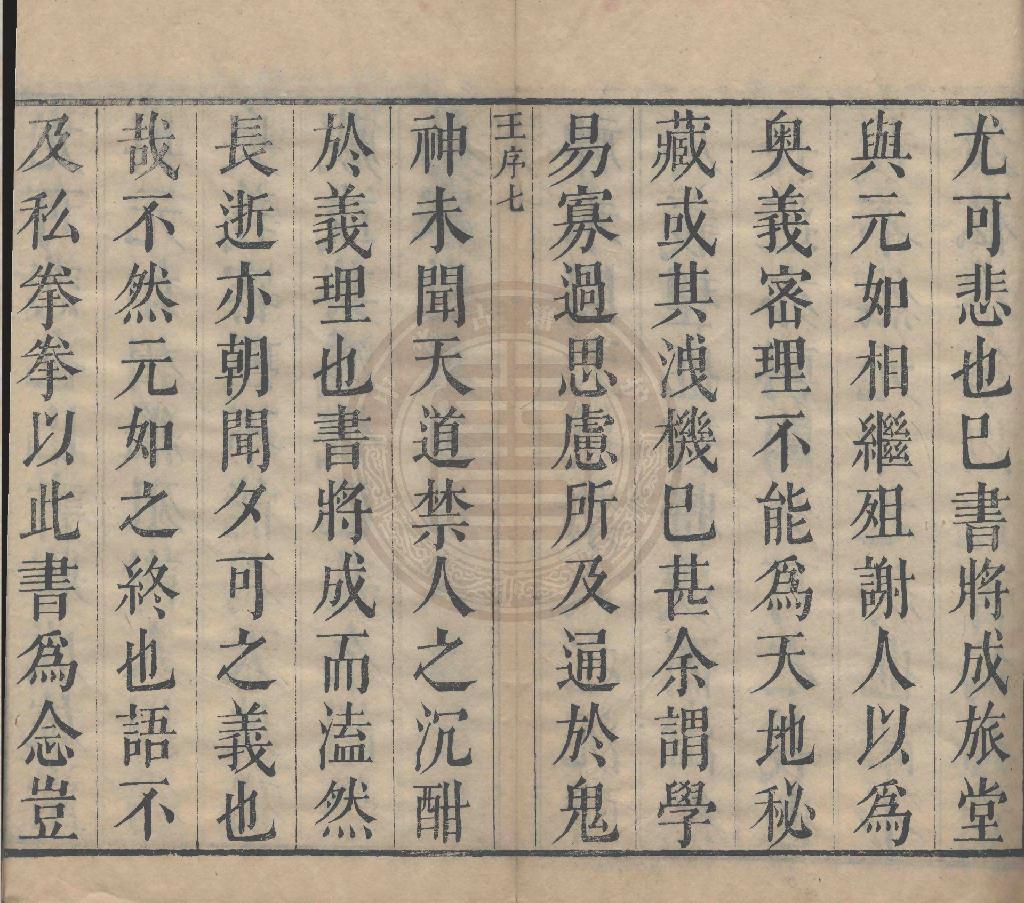 尤可悲也已書將成旅堂
與元如相繼殂謝人以為
奧義宻理不能為天地秘
藏或其洩機已甚余謂學
易寡過思慮所及通於鬼
王序七
神未聞天道禁人之沉酣
於義理也書將成而溘然
長逝亦朝聞夕可之義也
哉不然元如之終也語不
及私拳拳以此書為念豈